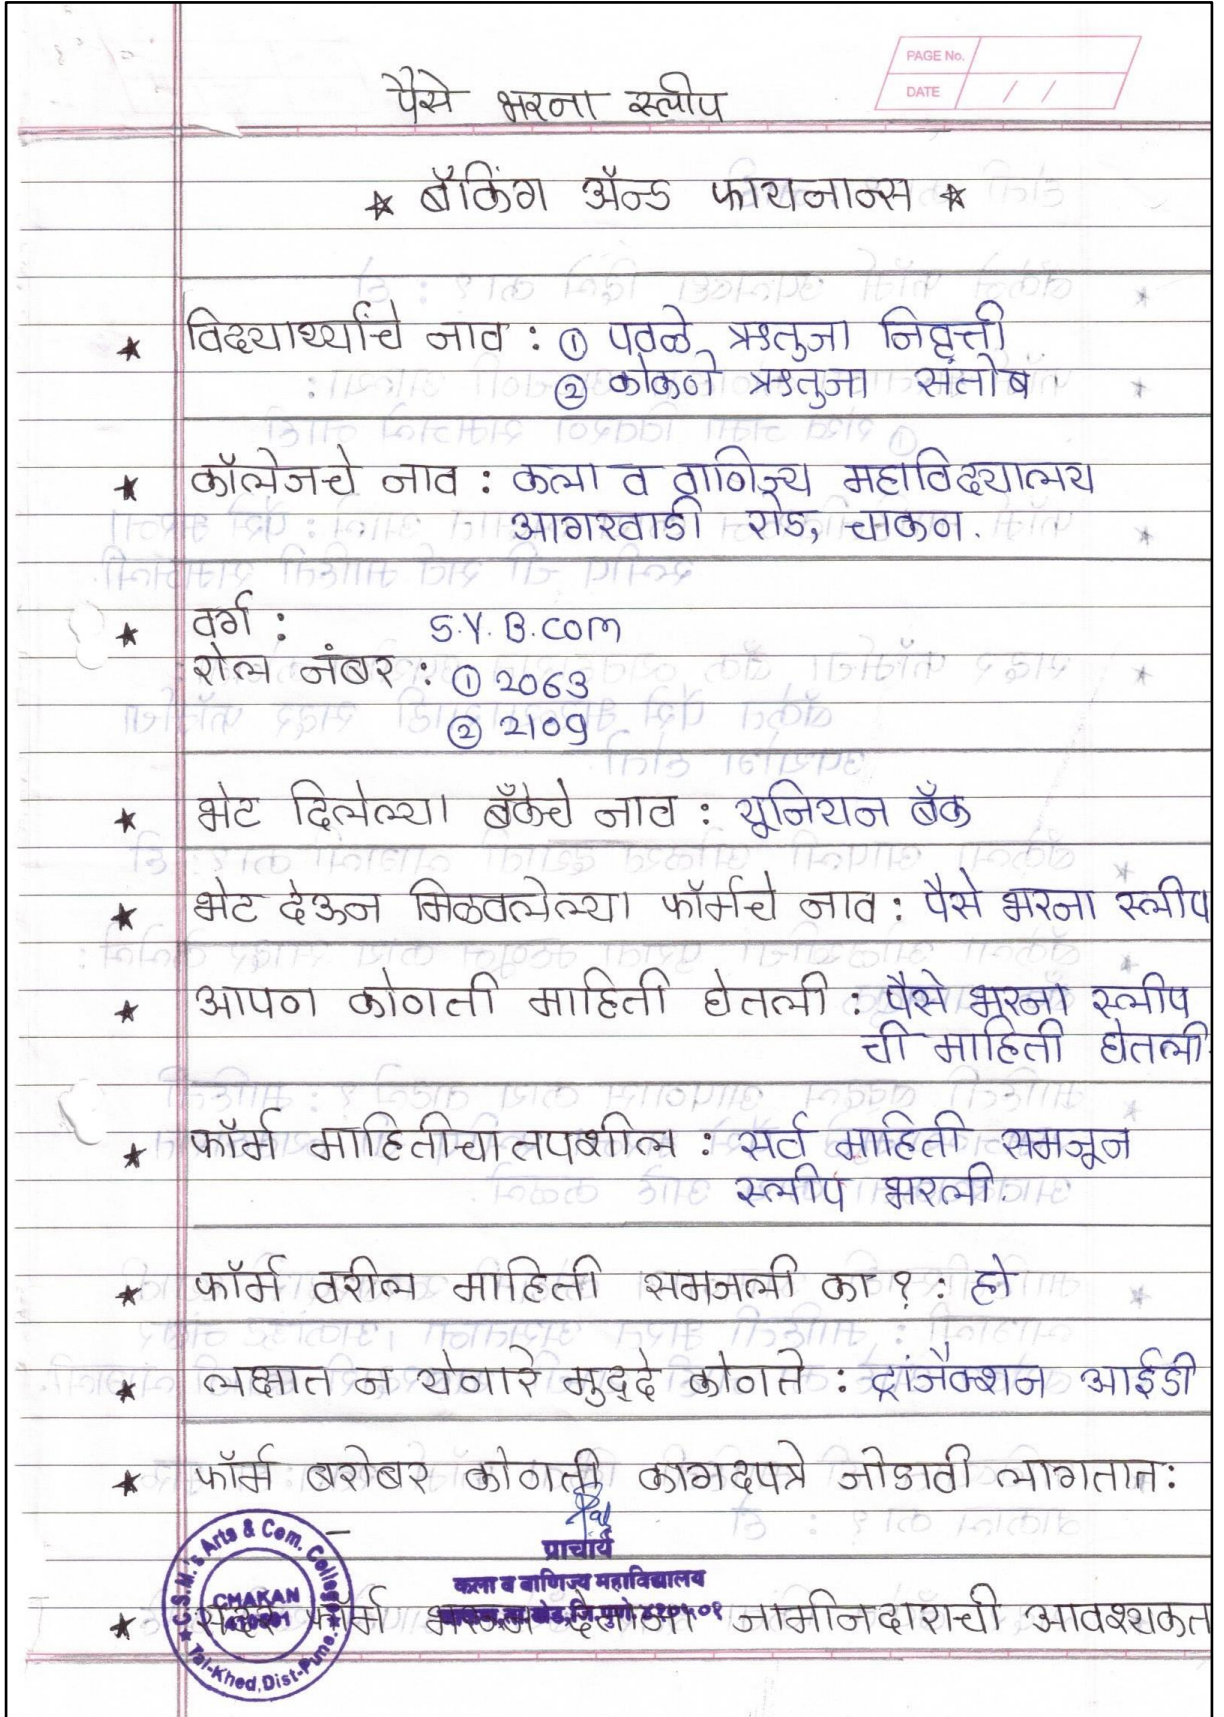 PAGE No.
DATE / /
पैसे भरना स्लीप
* बँकिंग ॲन्ड फायनान्स *
* विदयार्थ्यांचे नाव : ① पवळे ऋतुजा निवृत्ती
② कोकणे ऋतुजा संतोष
* कॉलेजचे नाव : कला व वाणिज्य महाविदयालय
आगरवाडी रोड, चाकण.
* वर्ग : S.Y. B.com
रोल नंबर : ① 2063
② 2109
* भेट दिलेल्या बँकेचे नाव : यूनियन बँक
* भेट देऊन मिळवलेल्या फॉर्मचे नाव : पैसे भरना स्लीप
* आपण कोणती माहिती घेतली : पैसे भरना स्लीप
ची माहिती घेतली
* फॉर्म माहितीचा तपशील : सर्व माहिती समजून
स्लीप भरली.
* फॉर्म वरील माहिती समजली का? : हो
* लक्षात न येणारे मुद्दे कोणते : ट्रांजैक्शन आईडी
* फॉर्म बरोबर कोणती कागदपत्रे जोडावी लागतात:
–
प्राचार्य
कला व वाणिज्य महाविद्यालय
चाकण, ता. खेड, जि. पुणे ४१०५०१
C.S.M.'s Arts & Com. College
CHAKAN
410501
Tal-Khed, Dist-Pune.
* सदर फॉर्म भरून देताना जामीनदाराची आवश्यकत